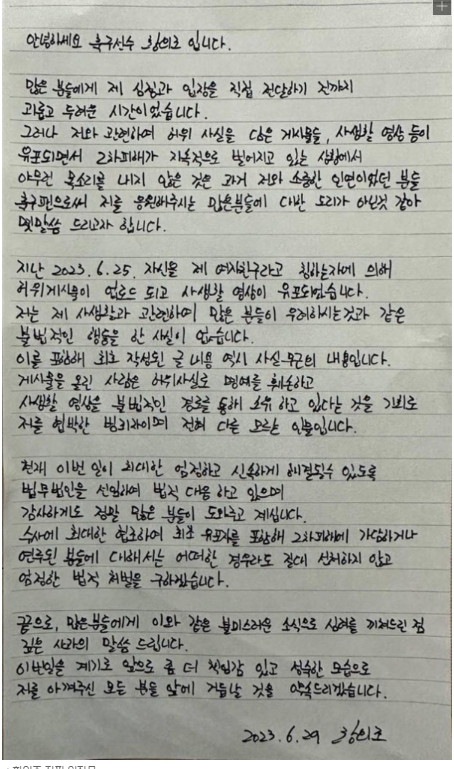 안녕하세요 축구선수 황의조 입니다.
많은 분들에게 제 심정과 입장을 직접 전달하기 전까지
괴롭고 두려운 시간이었습니다.
그러나 저와 관련하여 허위 사실을 담은 게시물들, 사생활 영상 등이
유포되면서 2차피해가 지속적으로 벌어지고 있는 상황에서
아무런 목소리를 내지 않은 것은 과거 저와 소중한 인연이었던 분들
축구팬으로써 저를 응원해주시는 많은분들에 대한 도리가 아닌것 같아
몇말씀 드리고자 합니다.
지난 2023.6.25. 자신을 제 여자친구라고 칭하는자에 의해
허위게시물이 업로드 되고 사생활 영상이 유포되었습니다.
저는 제 사생활과 관련하여 많은 분들이 우려하시는것과 같은
불법적인 행동을 한 사실이 없습니다.
이를 포함해 최초 작성된 글 내용 역시 사실무근의 내용입니다.
게시물을 올린 사람은 허위사실로 명예를 훼손하고
사생활 영상을 불법적인 경로를 통해 소유 하고 있다는 것을 기회로
저를 협박한 범죄자이며 전혀 다른 모르는 인물입니다.
현재 이번 일이 최대한 엄정하고 신속하게 해결될수 있도록
법무법인을 선임하여 법적 대응 하고 있으며
감사하게도 정말 많은 분들이 도와주고 계십니다.
수사에 최대한 협조하여 최초 유포자를 포함해 2차피해에 가담하거나
연루된 분들에 대해서는 어떠한 경우라도 절대 선처하지 않고
엄정한 법적 처벌을 구하겠습니다.
끝으로, 많은분들에게 이와 같은 불미스러운 소식으로 심려를 끼쳐드린 점
깊은 사과의 말씀 드립니다.
이번일을 계기로 앞으로 좀 더 책임감 있고 성숙한 모습으로
저를 아껴주신 모든 분들 앞에 거듭날 것을 약속드리겠습니다.
2023.6.29 황의조